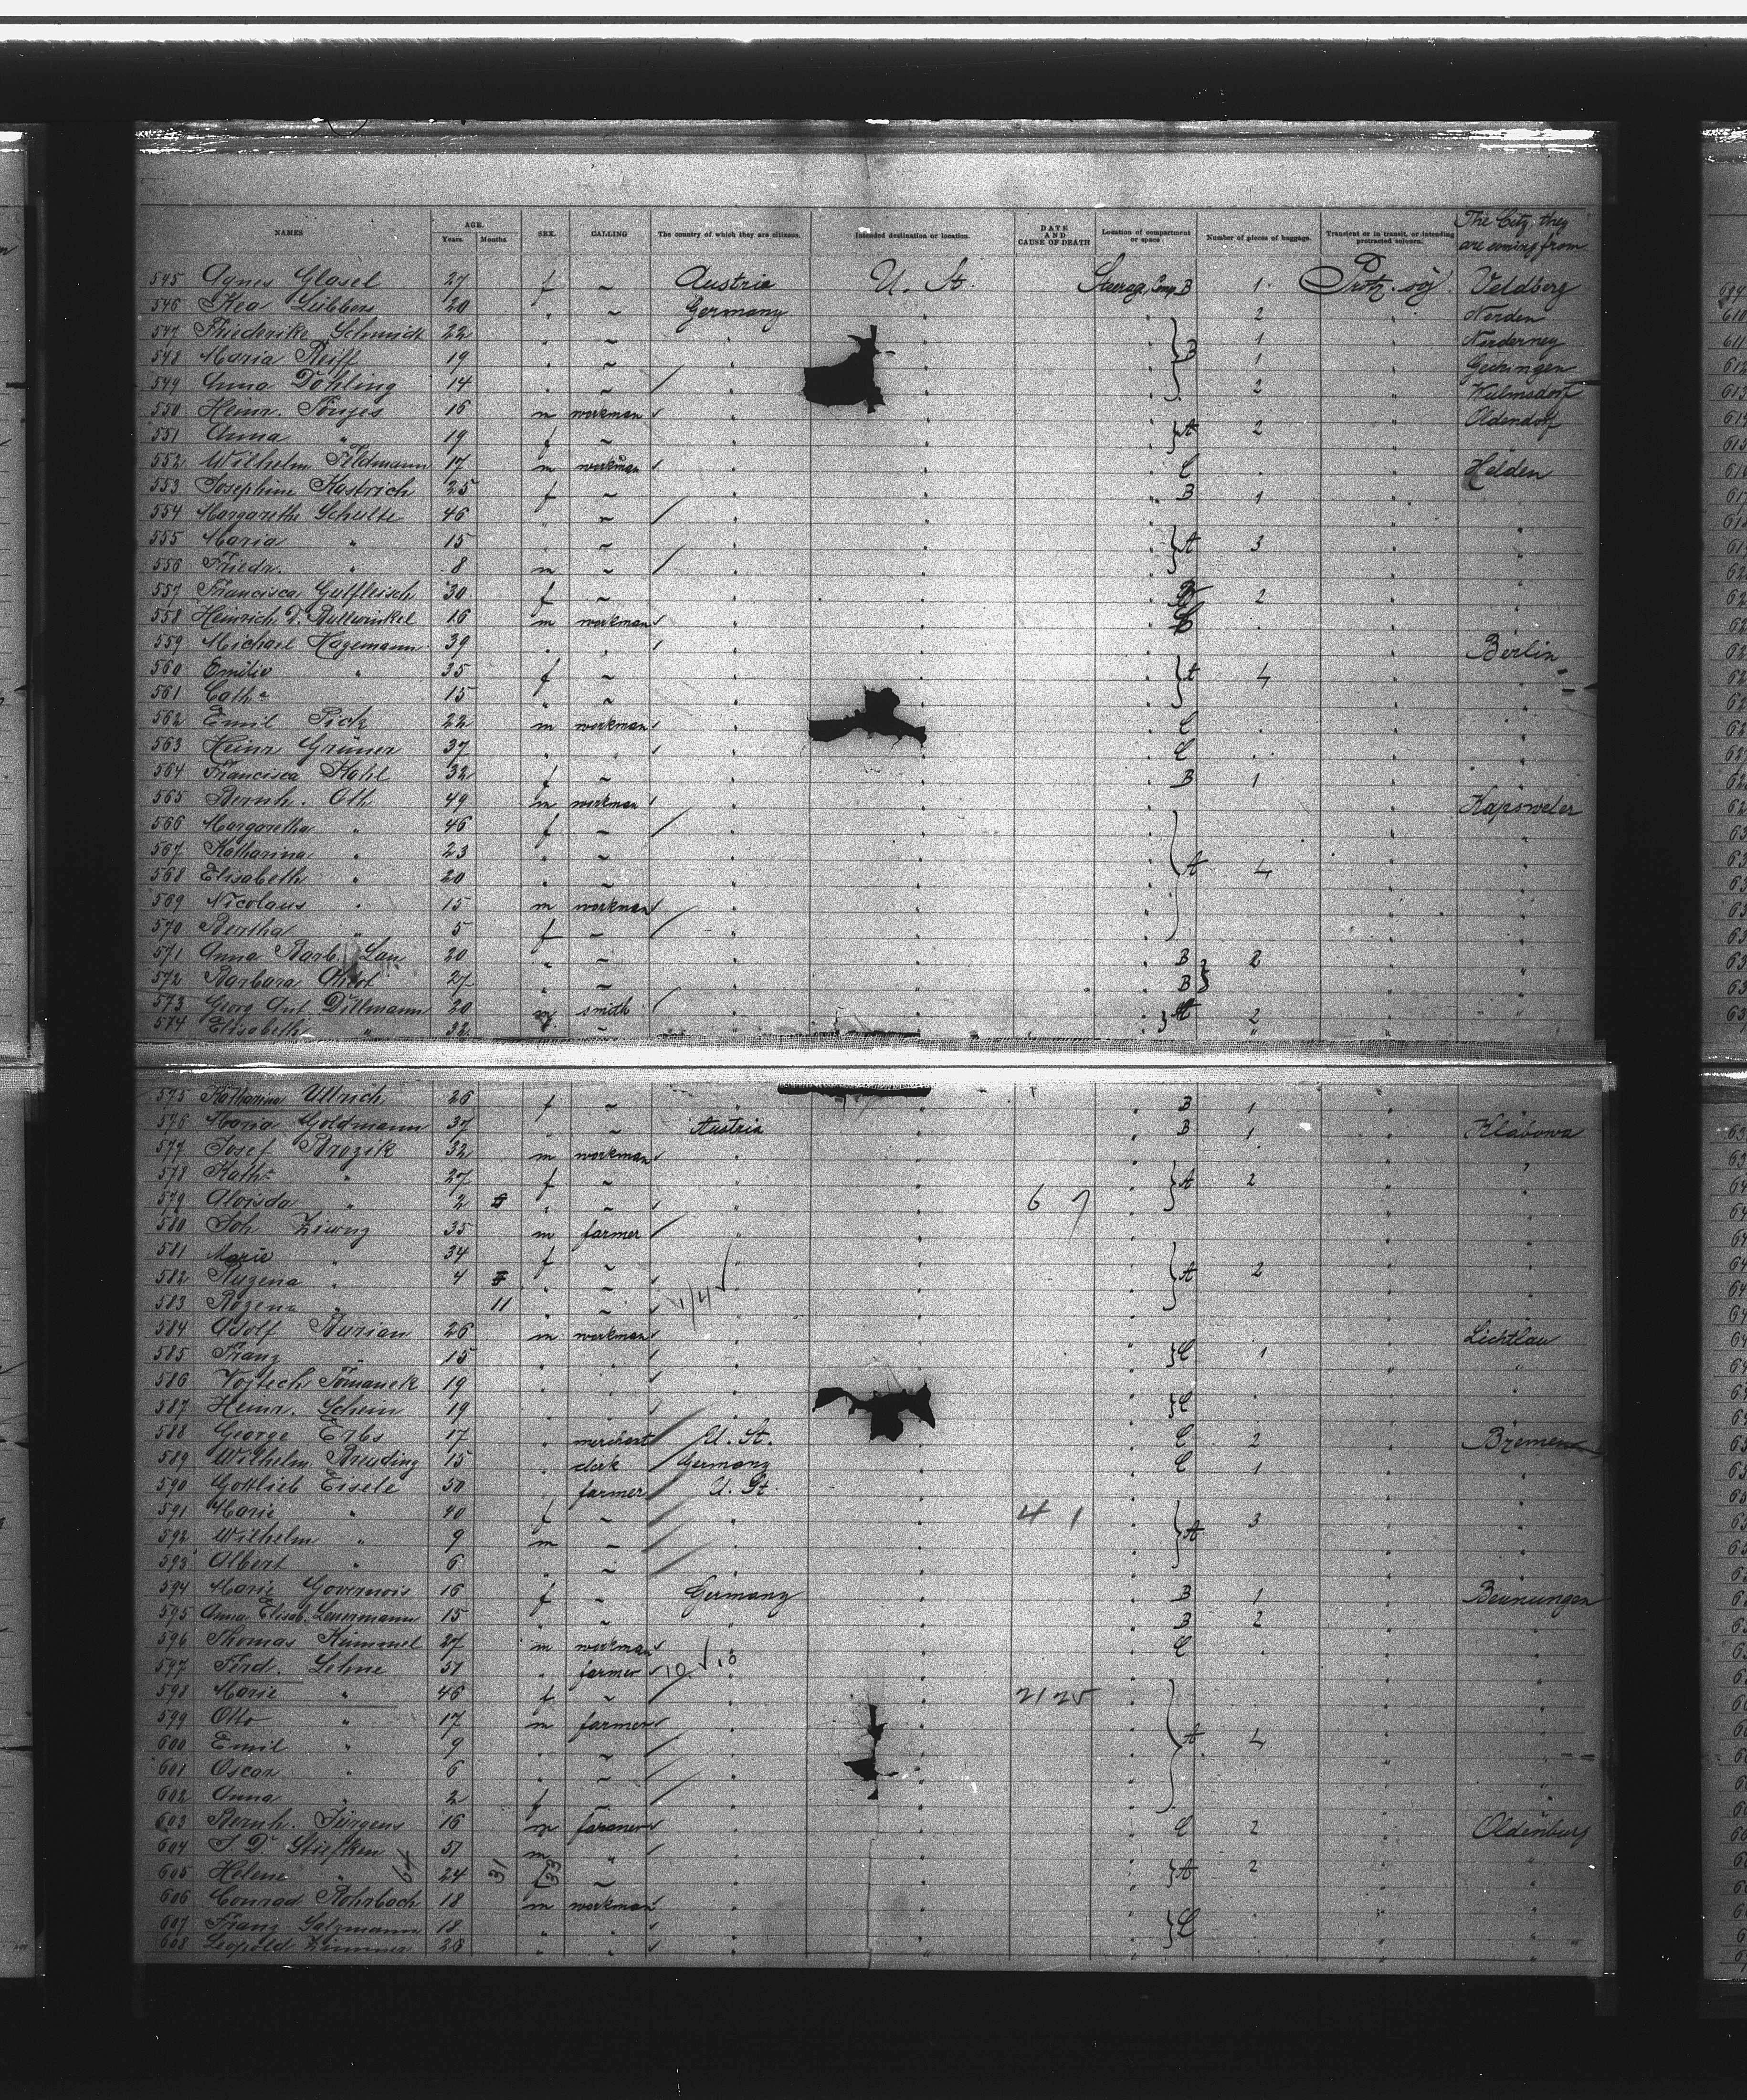 NAMES AGE. Years. Months. SEX. CALLING The country of which they are citizens. Intended destination or location. DATE AND CAUSE OF DEATH Location of compartment or space Number of pieces of baggage. Transient or in transit, or intending protracted sojourn. The City, they are coming from
545 Agnes Glasel 27 f ~ Austria U. St. Steerage, Comp B 1 Veldberg
546 Lübbers 20 " ~ Germany " " 2 " Norden
547 Friederike Schmidt 22 " ~ " " " 1 " Norderney
548 Maria Reiff 19 " ~ " " " B 1 "
549 Anna Döhling 14 " ~ " " " 2 " Wulmsdorf
550 Heinr. Tönjes 16 m workman " " " " Oldendorf
551 Anna " 19 f ~ " " " A 2 " "
552 Wilhelm Feldmann 17 m workman " " " C " " Helden
553 Josephine Kastrich 25 f ~ " " " B 1 " "
554 Margareth Schulte 46 " ~ " " " " "
555 Maria " 15 " ~ " " " A 3 " "
556 Friedr. " 8 m ~ " " " " "
557 Francisca Gutfleisch 30 f ~ " " B 2 " "
558 Heinrich D. Bullwinkel 16 m workman " " C " " "
559 Michael Hagemann 39 " " " " " " Berlin
560 Emilie " 35 f ~ " " " A 4 " "
561 Cath. " 15 " ~ " " " " "
562 Emil Pick 22 m workman " " " C " " "
563 Heinr Grüner 37 " " " " " C " " "
564 Francisca Kohl 32 f ~ " " " B 1 " "
565 Bernh. Oth 49 m workman " " " " Kapsweier
566 Margaretha " 46 f ~ " " " " "
567 Katharina " 23 " ~ " " " A 4 " "
568 Elisabeth " 20 " ~ " " " " "
569 Nicolaus " 15 m workman " " " " "
570 Bertha " 5 f ~ " " " " "
571 Anna Barb. Lau 20 " ~ " " " B 2 " "
572 Barbara 27 " ~ " " " B " "
573 Georg Ant. Dillmann 20 m smith " " " A 2 " "
574 Elisabeth " 32 ~ " " " " " "
575 Katharina Ullrich 26 f ~ " " " B 1 " "
576 Maria Goldmann 37 " ~ Austria " " B 1 " Hlabowa
577 Josef Brozik 32 m workman " " " " "
578 Kath. " 27 f ~ " " " A 2 " "
579 Aloisda " 2 " ~ " " 6 7 " " "
580 Joh 35 m farmer " " " " "
581 Marie " 34 f ~ " " " A 2 " "
582 Ruzena " 4 " ~ " " " " "
583 Rozena " 11 " ~ " " " " "
584 Adolf Burian 26 m workman " " " " Lichtlau
585 Franz " 15 " " " " " C 1 " "
586 Vojtech Tomanek 19 " " " " " " "
587 Heinr. Schein 19 " " " " " C " " "
588 George Erbs 17 " merchant U. St. " " C 2 " Bremen
589 Wilhelm Breuding 15 " clerk Germany " " C 1 " "
590 Gottlieb Eisele 50 " farmer U. St. " " " "
591 Marie " 40 f ~ " " 4 1 " A 3 " "
592 Wilhelm " 9 m ~ " " " " "
593 Albert " 6 " ~ " " " " "
594 Marie Governois 16 f ~ Germany " " B 1 " Beunungen
595 Anna Elisab. Leuermann 15 " ~ " " " B 2 " "
596 Thomas Kümmel 27 m workman " " " C " " "
597 Ferd. Lehne 51 " farmer 10 13 " " " " "
598 Marie " 46 f ~ " " 21 25 " " "
599 Otto " 17 m farmer " " " A 4 " "
600 Emil " 9 " ~ " " " " "
601 Oscar " 6 " ~ " " " " "
602 Anna " 2 f ~ " " " " "
603 Bernh. Jürgens 16 m farmer " " " C 2 " Oldenburg
604 J D Stiefken 51 m " " " " " "
605 Helene " 64 24 31 f 33 ~ " " " A 2 " "
606 Conrad Rohrbach 18 m workman " " " " "
607 Franz Salzmann 18 " " " " " C " "
608 Leopold Zimmer 28 " " " " " " "